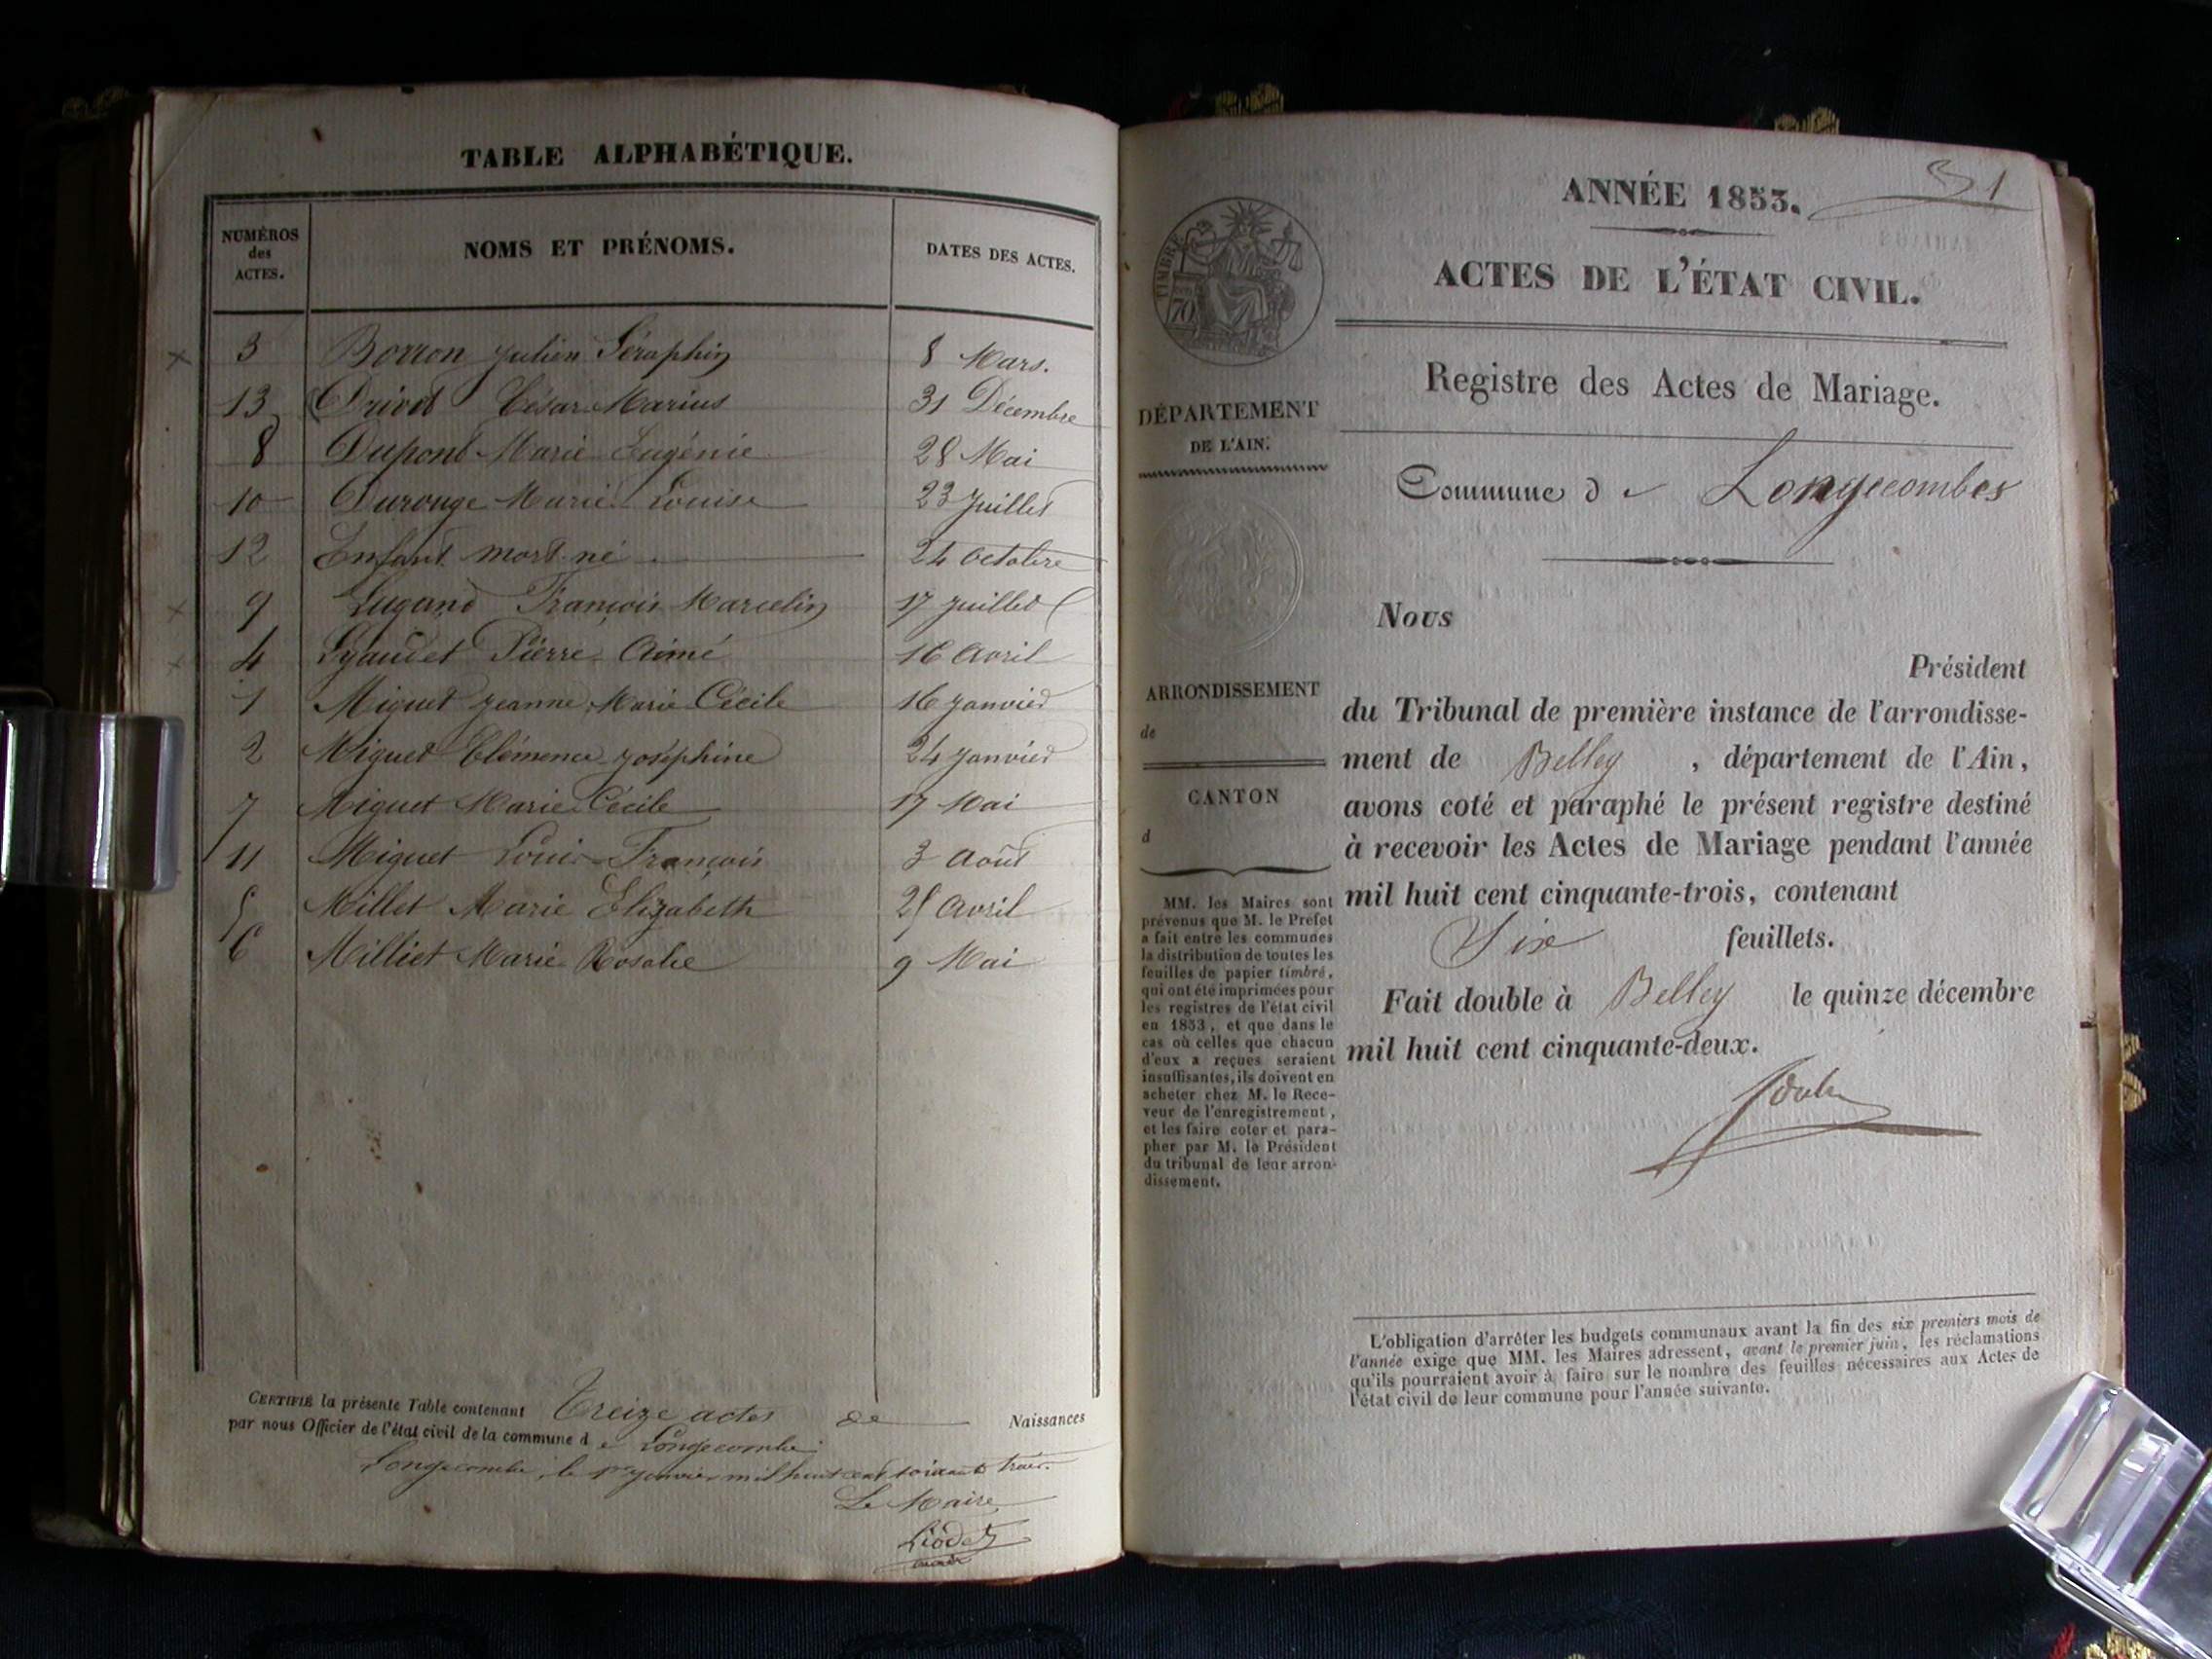 TABLE ALPHABÉTIQUE.
NUMÉROS
des
ACTES.
NOMS ET PRÉNOMS.
DATES DES ACTES.
3 Borron Julien Séraphin 8 Mars.
13 Drivet César Marius 31 Décembre
8 Dupont Marie Eugénie 28 Mai
10 Durouge Marie Louise 23 Juillet
12 Enfant mort né 24 Octobre
9 Lugand François Marcelin 17 Juillet
4 Lyaudet Pierre Aimé 16 Avril
1 Miguet Jeanne Marie Cécile 16 Janvier
2 Miguet Clémence Joséphine 24 Janvier
7 Miguet Marie Cécile 17 Mai
11 Miguet Louis François 3 Août
5 Millet Marie Elizabeth 25 Avril
6 Milliet Marie Rosalie 9 Mai
CERTIFIÉ la présente Table contenant Treize actes de Naissances
par nous Officier de l'état civil de la commune d e Longecombe
Longecombe, le 1er janvier mil huit cent
Le Maire
Liodet
maire
51
ANNÉE 1853.
ACTES DE L'ÉTAT CIVIL.
Registre des Actes de Mariage.
Commune d e Longecombes
TIMBRE
70
DÉPARTEMENT
DE L'AIN.
ARRONDISSEMENT
de
CANTON
d
MM. les Maires sont
prévenus que M. le Préfet
a fait entre les communes
la distribution de toutes les
feuilles de papier timbré,
qui ont été imprimées pour
les registres de l'état civil
en 1853, et que dans le
cas où celles que chacun
d'eux a reçues seraient
insuffisantes, ils doivent en
acheter chez M. le Rece-
veur de l'enregistrement,
et les faire coter et para-
pher par M. le Président
du tribunal de leur arron-
dissement.
Nous
Président
du Tribunal de première instance de l'arrondisse-
ment de Belley , département de l'Ain,
avons coté et paraphé le présent registre destiné
à recevoir les Actes de Mariage pendant l'année
mil huit cent cinquante-trois, contenant
Six feuillets.
Fait double à Belley le quinze décembre
mil huit cent cinquante-deux.
L'obligation d'arrêter les budgets communaux avant la fin des six premiers mois de
l'année exige que MM. les Maires adressent, avant le premier juin, les réclamations
qu'ils pourraient avoir à faire sur le nombre des feuilles nécessaires aux Actes de
l'état civil de leur commune pour l'année suivante.